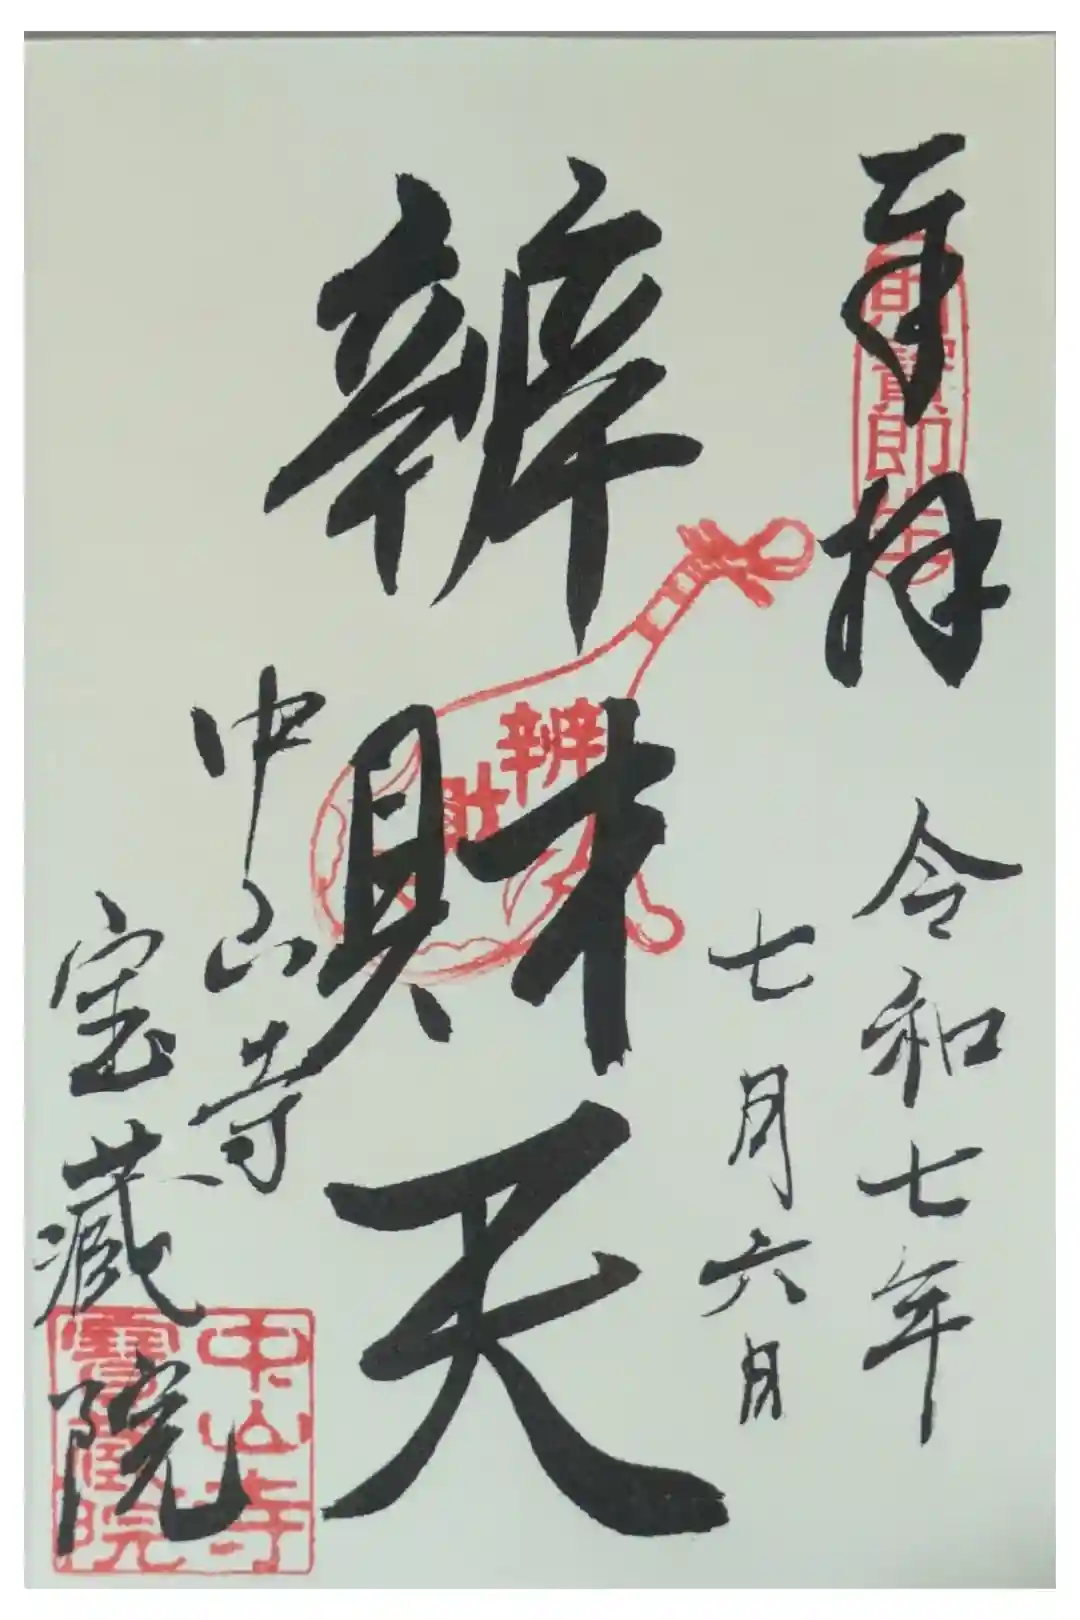 奉拝
令和七年
七月六日
辨財天
中山寺
宝蔵院
財寶即生
辨財
中山寺
寶蔵院